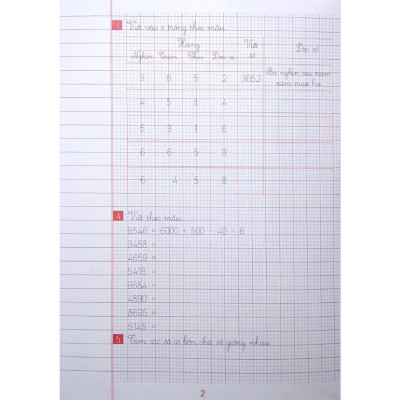 1 Viết vào ô trống theo mẫu
Hàng Viết số Đọc số
Nghìn Trăm Chục Đơn vị
3 6 5 2 3652 Ba nghìn sáu trăm năm mươi hai
4 5 3 4
5 3 1 6
6 6 5 9
6 4 5 8
4 Viết theo mẫu
6546 = 6000 + 500 + 40 + 6
3458 =
4659 =
5416 =
9684 =
4890 =
8695 =
5145 =
5 Tìm các số có bốn chữ số giống nhau
2